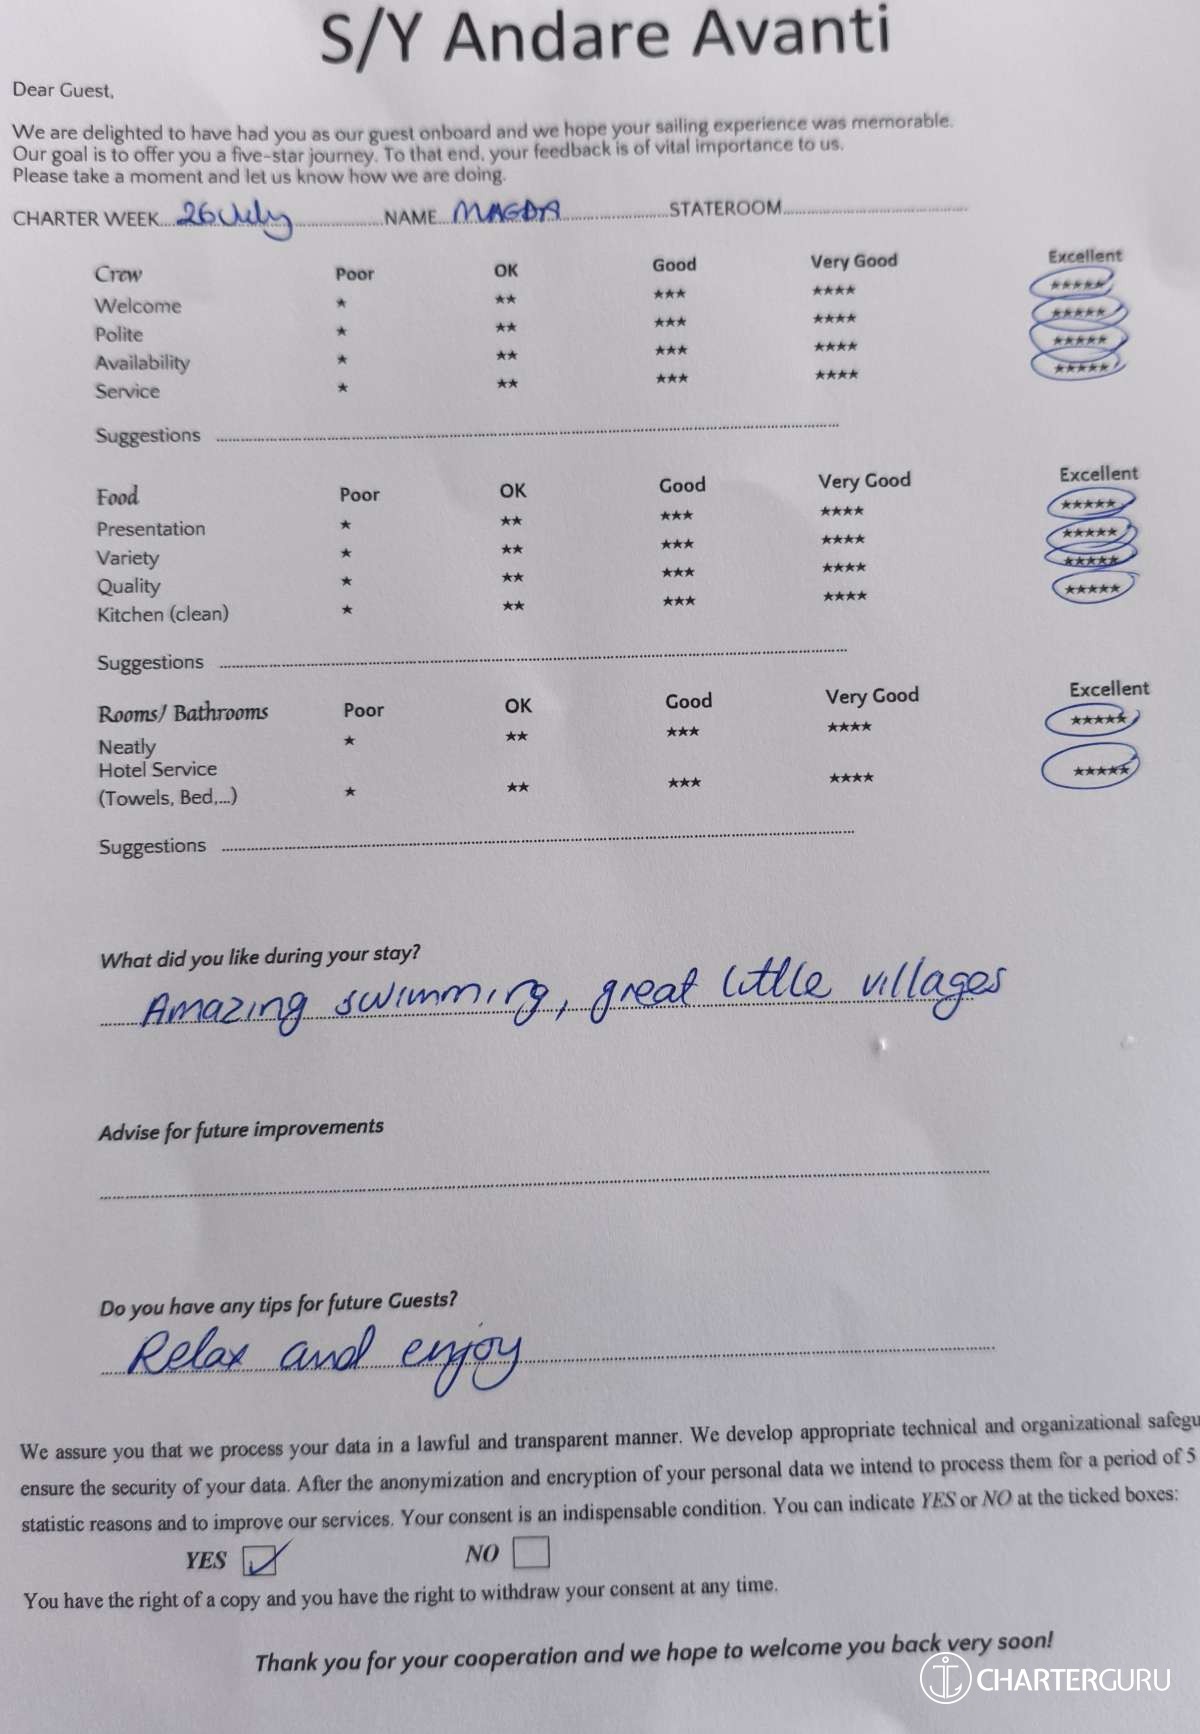 S/Y Andare Avanti
Dear Guest,
We are delighted to have had you as our guest onboard and we hope your sailing experience was memorable.
Our goal is to offer you a five-star journey. To that end, your feedback is of vital importance to us.
Please take a moment and let us know how we are doing.
CHARTER WEEK 26 July NAME MAGDA STATEROOM
Crew Poor OK Good Very Good Excellent
Welcome ★ ★★ ★★★ ★★★★ ★★★★★
Polite ★ ★★ ★★★ ★★★★ ★★★★★
Availability ★ ★★ ★★★ ★★★★ ★★★★★
Service ★ ★★ ★★★ ★★★★ ★★★★★
Suggestions
Food Poor OK Good Very Good Excellent
Presentation ★ ★★ ★★★ ★★★★ ★★★★★
Variety ★ ★★ ★★★ ★★★★ ★★★★★
Quality ★ ★★ ★★★ ★★★★ ★★★★★
Kitchen (clean) ★ ★★ ★★★ ★★★★ ★★★★★
Suggestions
Rooms/ Bathrooms Poor OK Good Very Good Excellent
Neatly ★ ★★ ★★★ ★★★★ ★★★★★
Hotel Service
(Towels, Bed,...) ★ ★★ ★★★ ★★★★ ★★★★★
Suggestions
What did you like during your stay?
Amazing swimming, great little villages
Advise for future improvements
Do you have any tips for future Guests?
Relax and enjoy
We assure you that we process your data in a lawful and transparent manner. We develop appropriate technical and organizational safegu
ensure the security of your data. After the anonymization and encryption of your personal data we intend to process them for a period of 5
statistic reasons and to improve our services. Your consent is an indispensable condition. You can indicate YES or NO at the ticked boxes:
YES NO
You have the right of a copy and you have the right to withdraw your consent at any time.
Thank you for your cooperation and we hope to welcome you back very soon!
CHARTERGURU